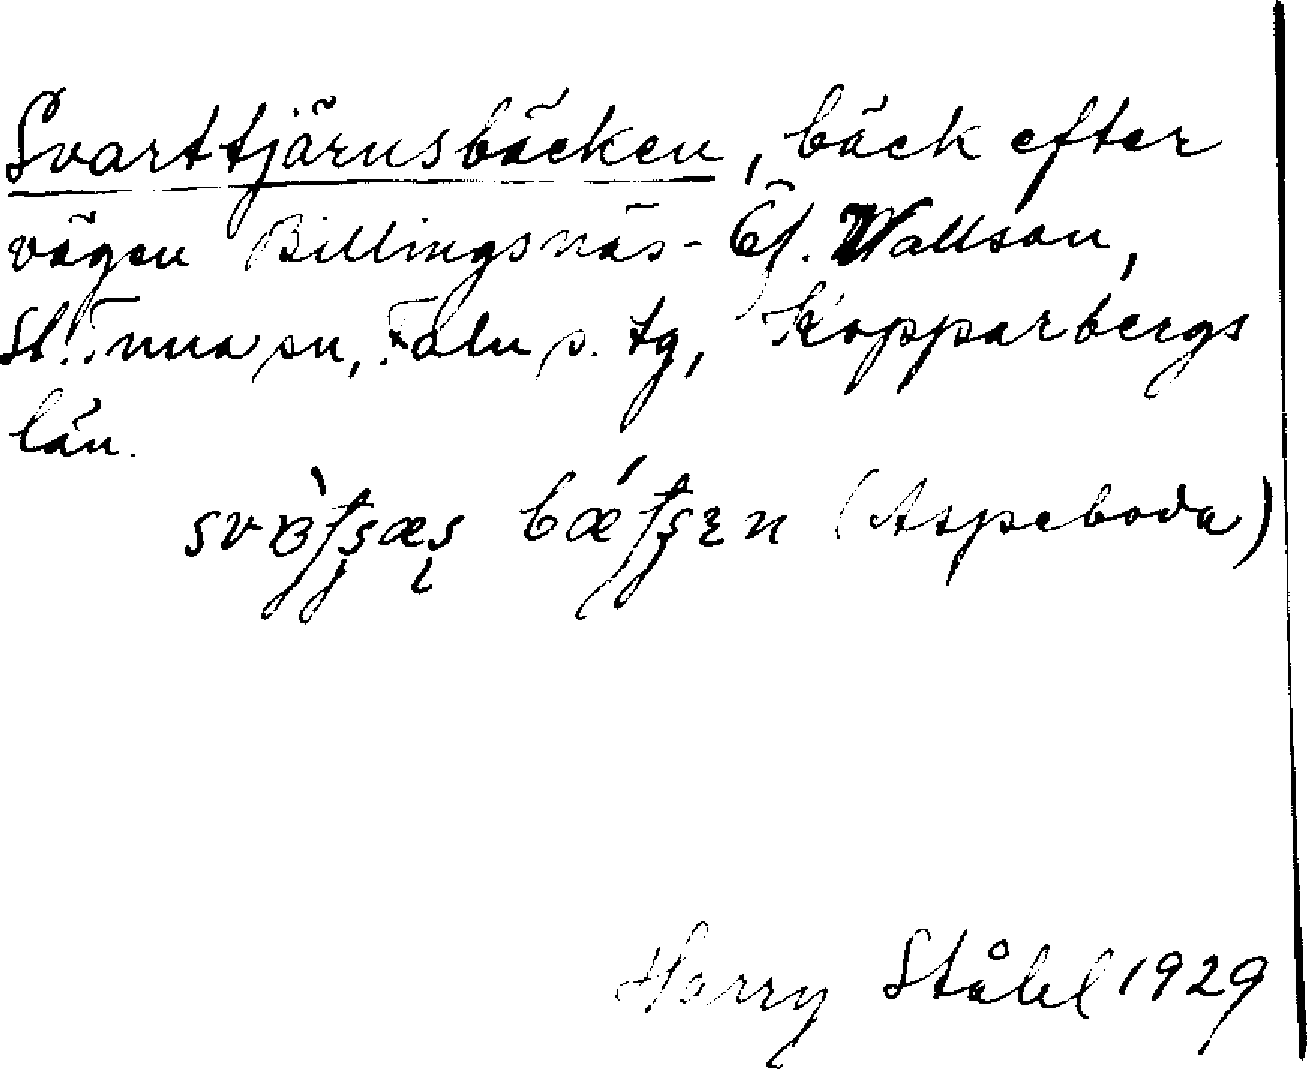 Svarttjärnsbäcken, bäck efter
vägen Billingsnäs- Öf. Wallsan,
St. Tuna sn, Falu s. tg, Kopparbergs
län.
(Aspeboda)
Harry Ståhl 1929